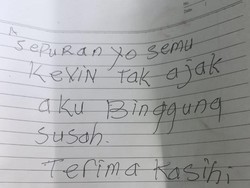 sepuran yo semu
KeViN Tak ajak
aku Binggung
susah.
Terima Kasihi